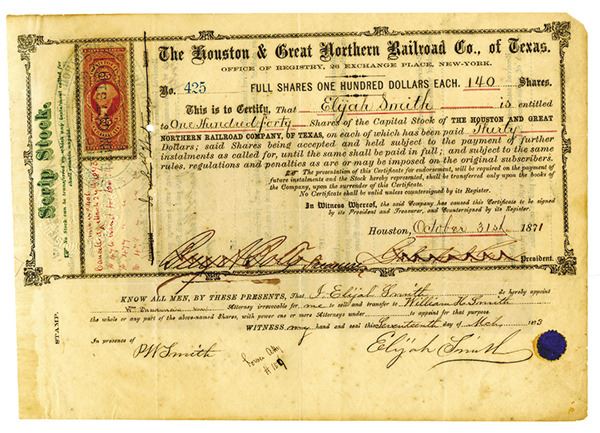 The Houston & Great Northern Railroad Co., of Texas.
OFFICE OF REGISTRY, 26 EXCHANGE PLACE, NEW-YORK.
No. 425 FULL SHARES ONE HUNDRED DOLLARS EACH. 140 Shares.
This is to Certify, That Elijah Smith is entitled
to One Hundred forty Shares of the Capital Stock of THE HOUSTON AND GREAT
NORTHERN RAILROAD COMPANY, OF TEXAS, on each of which has been paid Thirty
Dollars; said Shares being accepted and held subject to the payment of further
instalments as called for, until the same shall be paid in full; and subject to the same
rules, regulations and penalties as are or may be imposed on the original subscribers.
The presentation of this Certificate for endorsement, will be required on the payment of
future instalments and the Stock hereby represented, shall be transferred only upon the books of
the Company, upon the surrender of this Certificate.
No Certificate shall be valid unless countersigned by its Register.
In Witness Whereof, the said Company has caused this Certificate to be signed
by its President and Treasurer, and Countersigned by its Register.
Houston, October 31st 1871
President.
Scrip Stock.
25
25
KNOW ALL MEN, BY THESE PRESENTS, That I, Elijah Smith do hereby appoint
Attorney irrevocable for me to sell and transfer to William H. Smith
the whole or any part of the above-named Shares, with power one or more Attorneys under to appoint for that purpose
WITNESS my hand and seal this Seventeenth day of 1873
In presence of
P.W. Smith
Elijah Smith
STAMP.